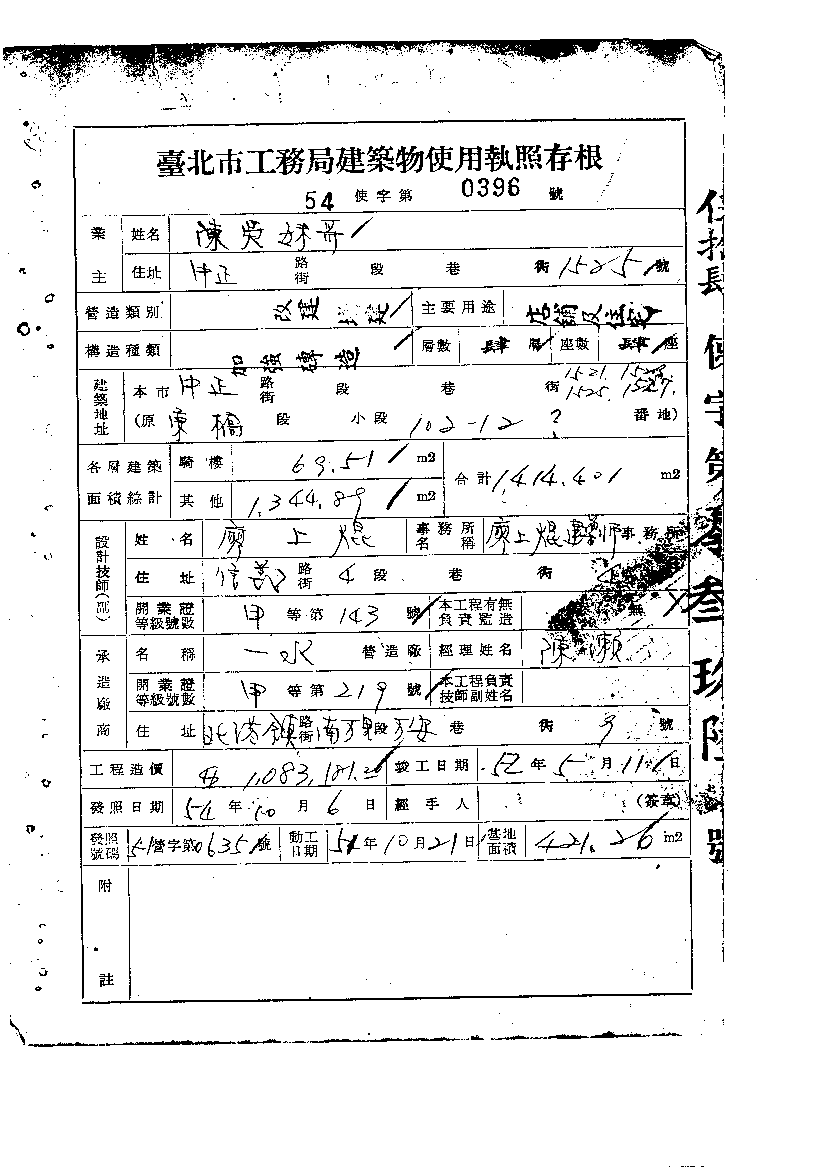 臺北市工務局建築物使用執照存根
54 使字第 0396 號
業主 姓名 陳吳妹哥
住址 中正 路街 段 巷 衖 1525 號
營造類別 改建 主要用途 店鋪及住宅
構造種類 加強磚造 層數 肆 層 座數 肆 座
建築地址 本市 中正 路街 段 巷 衖 1521. 1525. 1527.
(原 東橋 段 小段 102-12 番地)
各層建築面積綜計 騎樓 69.51 m2 合計 1,414.40 m2
其他 1,344.89 m2
設計技師(副) 姓名 廖上焜 事務所名稱 廖上焜建築師事務所
住址 信義 路街 4 段 巷 衖 號
開業證等級號數 甲 等第 143 號 本工程有無負責監造 無
承造廠商 名稱 一水 營造廠 經理姓名 陳
開業證等級號數 甲 等第 219 號 本工程負責技師副姓名
住址 北港鎮 路街 南 段 巷 衖 9 號
工程造價 1,083,181.20 竣工日期 52 年 5 月 11 日
發照日期 54 年 10 月 6 日 經手人 (簽章)
發照號碼 51 營字第 0635 號 動工日期 51 年 10 月 21 日 基地面積 421.26 m2
附註
伍拾肆使字第零叁玖陸號